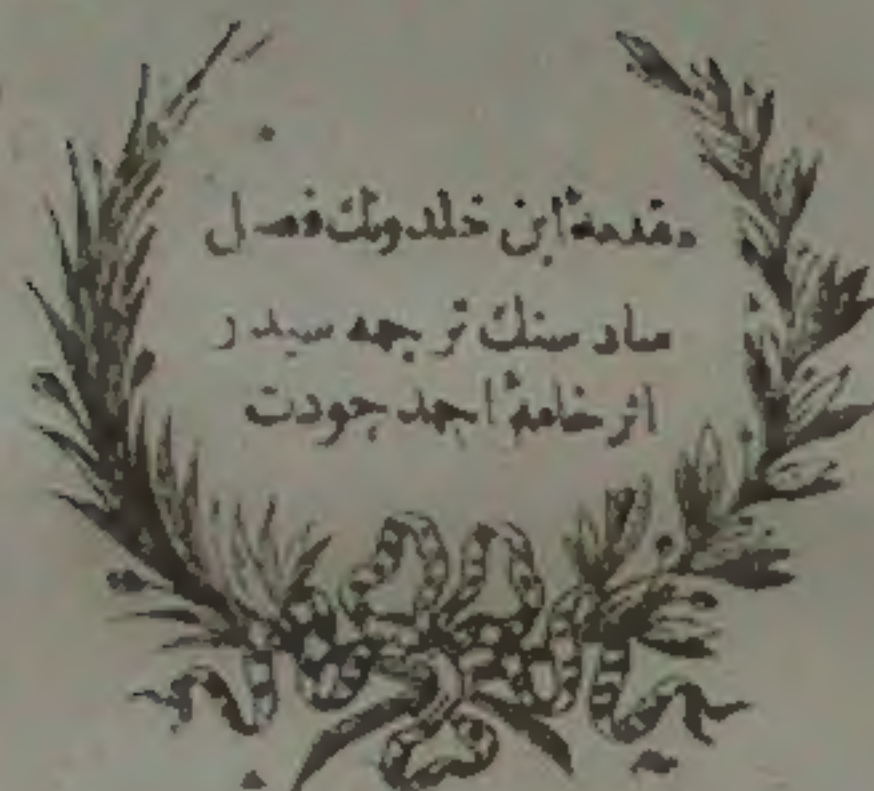 مقدمهٔ ابن خلدونك فصل
سادسنك ترجمه سيدر
اثر خامهٔ احمد جودت